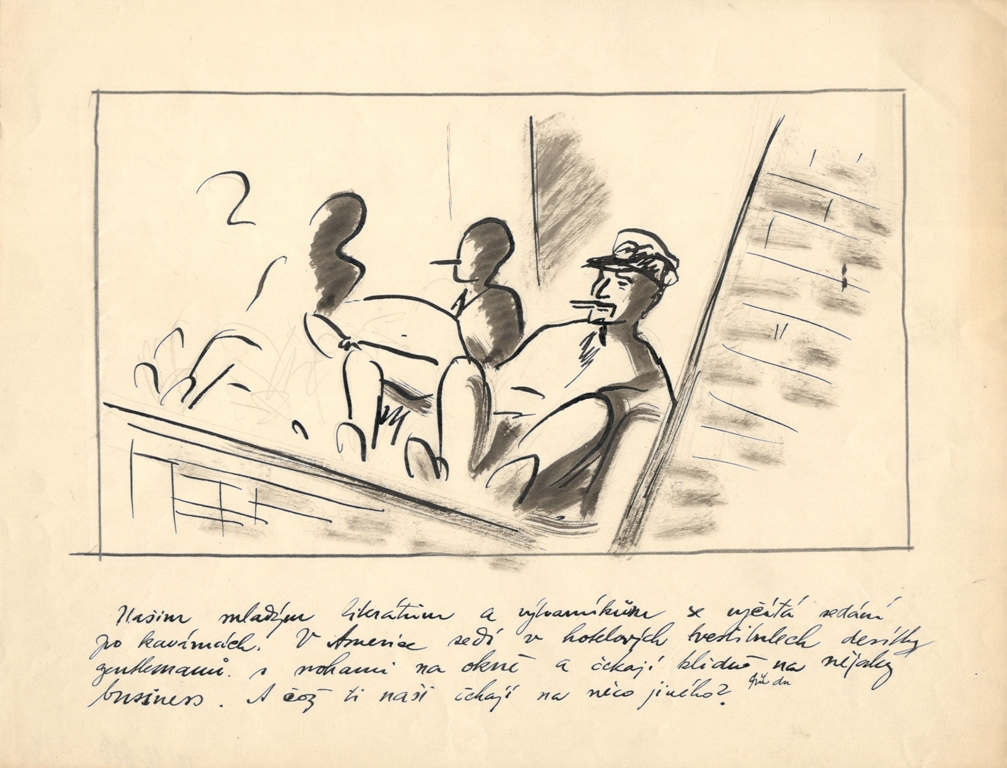 Našim mladým literátům a výtvarníkům se vyčítá sedání
po kavárnách. V Americe sedí v hotelových vestibulech desítky
gentlemanů s nohami na okně a čekají klidně na nějaký
business. A což ti naši čekají na něco jiného?